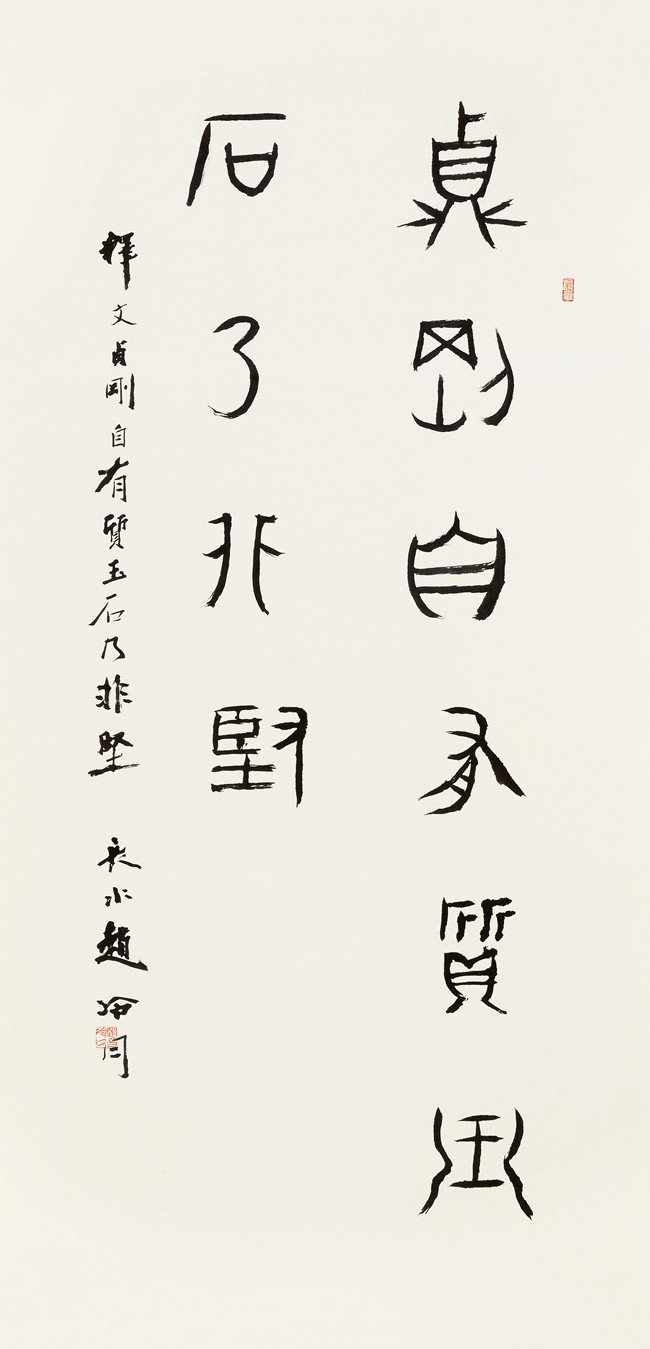 貞剛自有質玉
石乃非堅
釋文貞剛自有質玉石乃非堅 長水趙冷月